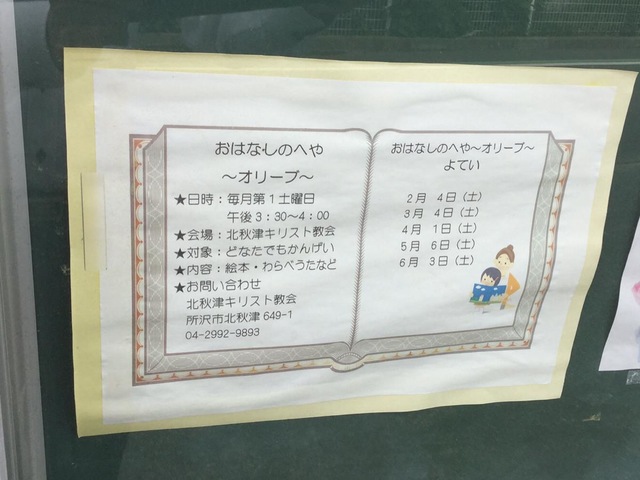 おはなしのへや
～オリーブ～
★日時：毎月第1土曜日
午後3：30～4：00
★会場：北秋津キリスト教会
★対象：どなたでもかんげい
★内容：絵本・わらべうたなど
★お問い合わせ
北秋津キリスト教会
所沢市北秋津649-1
04-2992-9893
おはなしのへや～オリーブ～
よてい
2月 4日（土）
3月 4日（土）
4月 1日（土）
5月 6日（土）
6月 3日（土）